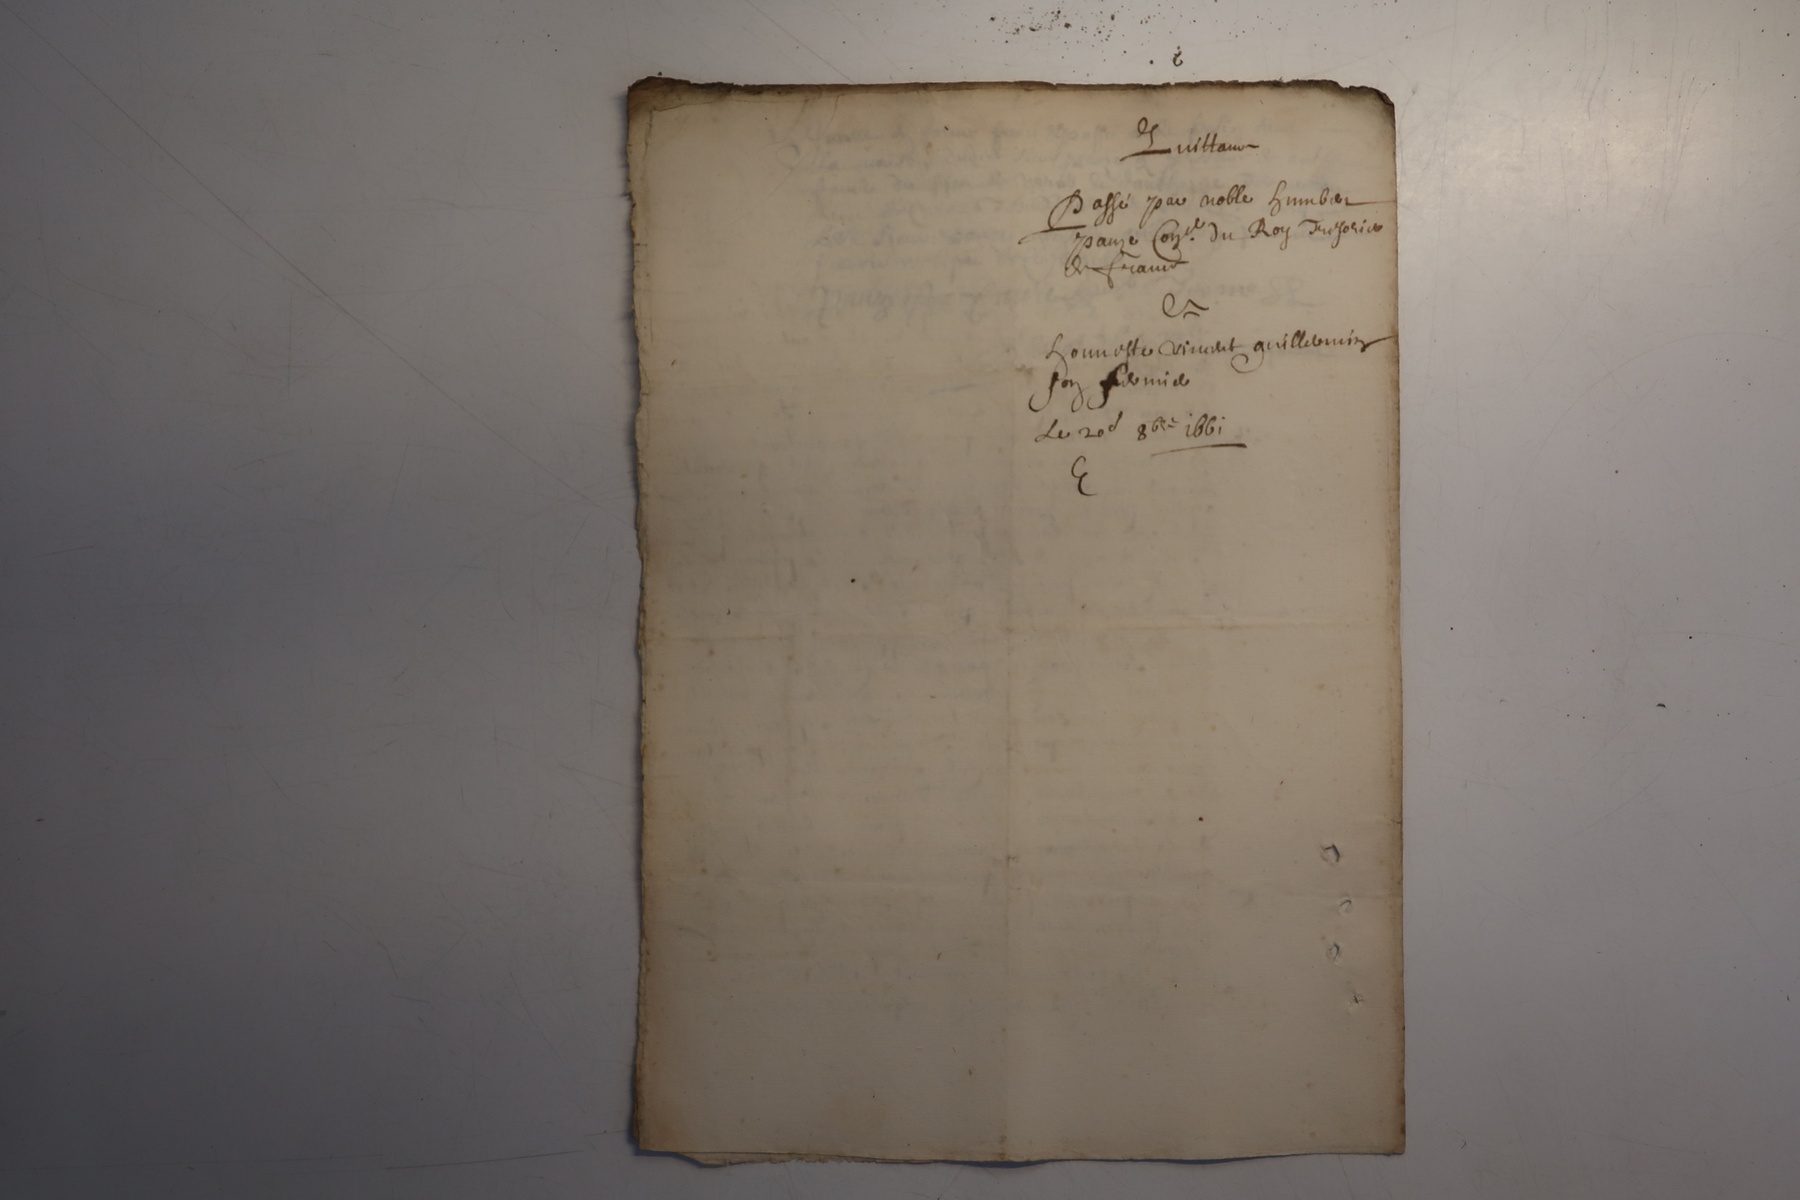 Quittance
Passé par noble humber
paure Con.er du Roy Tresorier
de france
A
honneste vincent guillermin
son fermie
Le 20e 8bre 1661